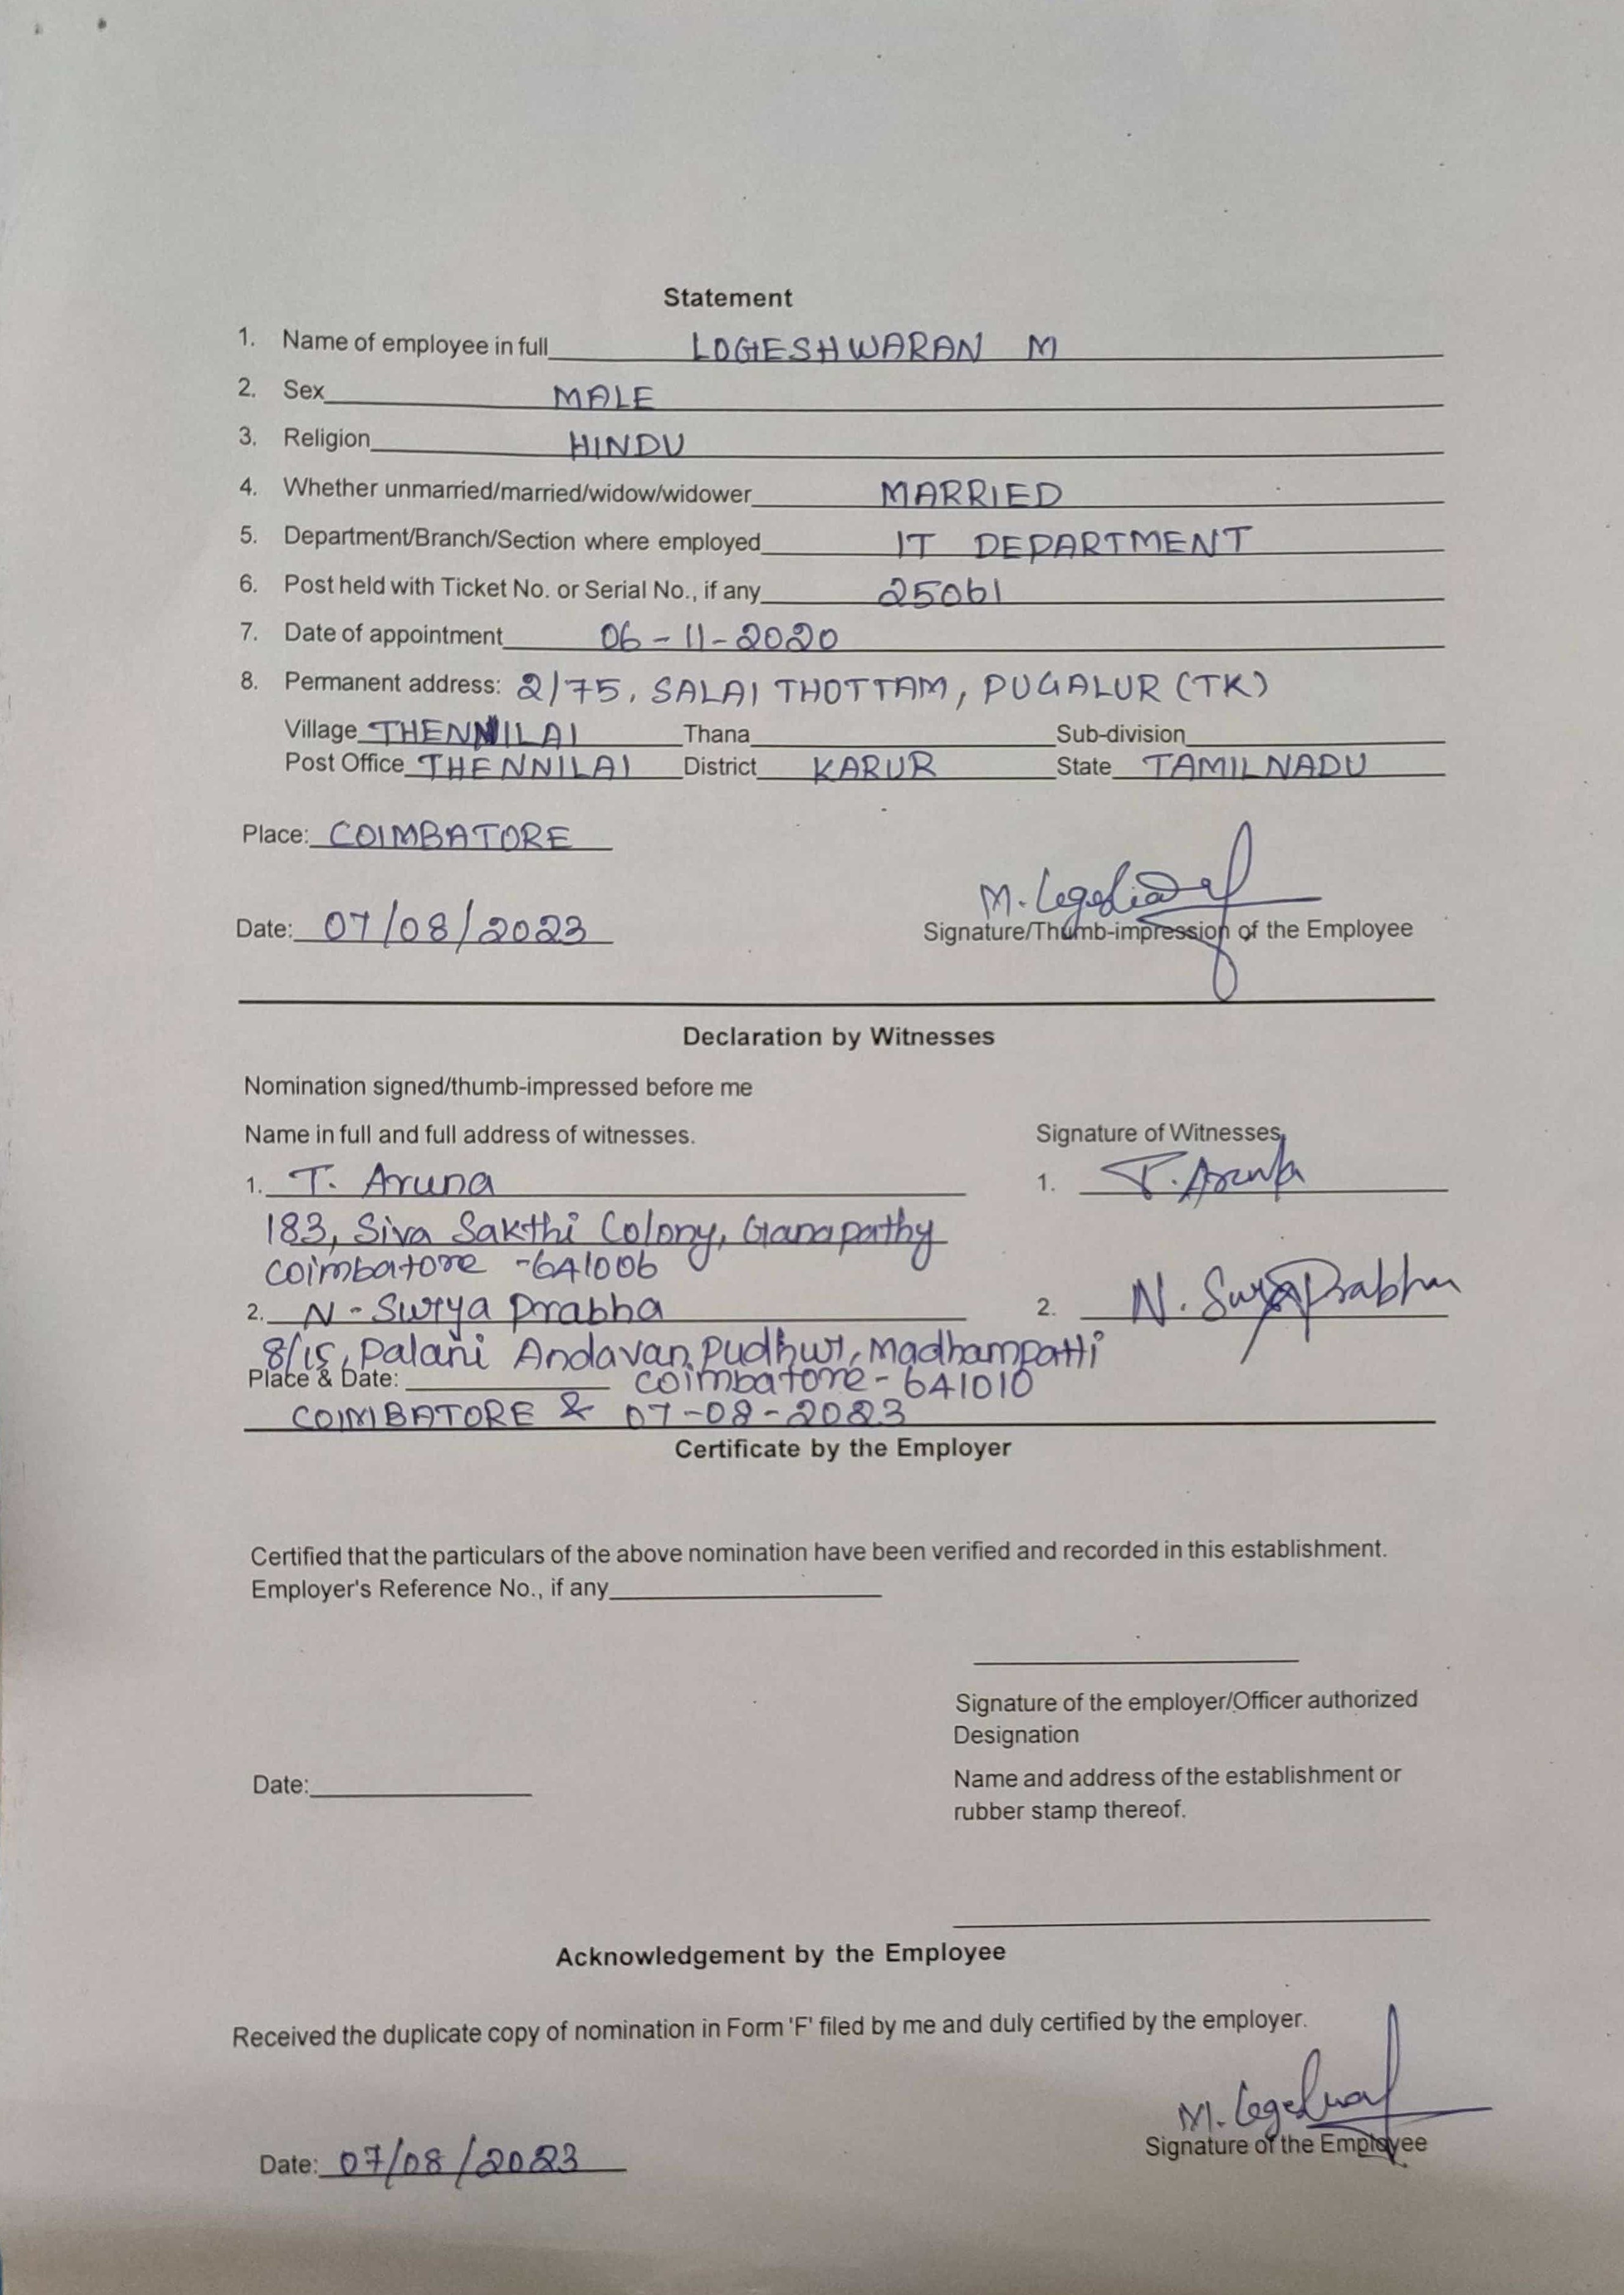 Statement
1. Name of employee in full LOGESHWARAN M
2. Sex MALE
3. Religion HINDU
4. Whether unmarried/married/widow/widower MARRIED
5. Department/Branch/Section where employed IT DEPARTMENT
6. Post held with Ticket No. or Serial No., if any 25061
7. Date of appointment 06-11-2020
8. Permanent address: 2/75, SALAI THOTTAM, PUGALUR (TK)
Village THENNILAI Thana Sub-division
Post Office THENNILAI District KARUR State TAMILNADU
Place: COIMBATORE
M.
Date: 07/08/2023 Signature/Thumb-impression of the Employee
Declaration by Witnesses
Nomination signed/thumb-impressed before me
Name in full and full address of witnesses. Signature of Witnesses
1. T. Aruna 1. T. Aruna
183, Siva Sakthi Colony, Ganapathy
Coimbatore -641006
2. N. Surya Prabha 2. N. Surya Prabha
8/15, Palani Andavan Pudhur, Madhampatti
Place & Date: Coimbatore - 641010
COIMBATORE & 07-08-2023
Certificate by the Employer
Certified that the particulars of the above nomination have been verified and recorded in this establishment.
Employer's Reference No., if any
Signature of the employer/Officer authorized
Designation
Date: Name and address of the establishment or
rubber stamp thereof.
Acknowledgement by the Employee
Received the duplicate copy of nomination in Form 'F' filed by me and duly certified by the employer.
M.
Signature of the Employee
Date: 07/08/2023